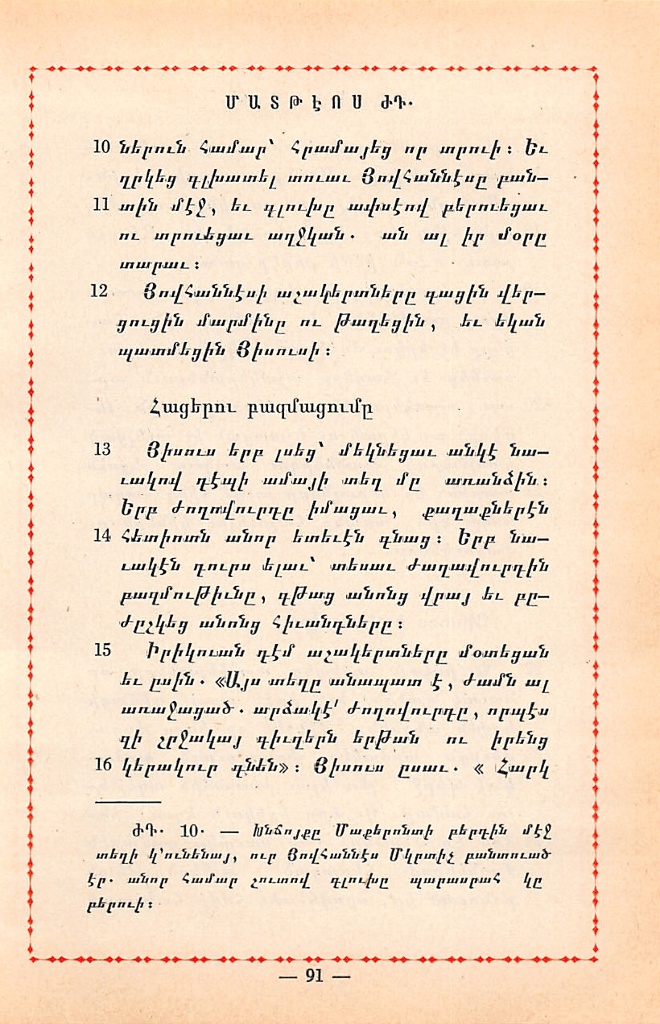 ՄԱՏԹԷՈՍ ԺԴ.
10 ներուն համար՝ հրամայեց որ տրուի։ Եւ
ղրկեց գլխատել տուաւ Յովհաննէսը բան–
11 տին մէջ, եւ գլուխը ափսէով բերուեցաւ
ու տրուեցաւ աղջկան. ան ալ իր մօրը
տարաւ։
12 Յովհաննէսի աշակերտները գացին վեր–
ցուցին մարմինը ու թաղեցին, եւ եկան
պատմեցին Յիսուսի։
Հացերու բազմացումը
13 Յիսուս երբ լսեց՝ մեկնեցաւ անկէ նա–
ւակով դէպի ամայի տեղ մը առանձին։
Երբ ժողովուրդը իմացաւ, քաղաքներէն
14 հետիոտն անոր ետեւէն գնաց։ Երբ նա–
ւակէն դուրս ելաւ՝ տեսաւ ժաղավուրդին
բազմութիւնը, գթաց անոնց վրայ եւ բը–
ժըշկեց անոնց հիւանդները։
15 Իրիկուան դէմ աշակերտները մօտեցան
եւ ըսին. «Այս տեղը անապատ է, ժամն ալ
առաջացած. արձակէ՛ ժողովուրդը, որպէս
զի շրջակայ գիւղերն երթան ու իրենց
16 կերակուր գնեն»։ Յիսուս ըսաւ. « Հարկ
ԺԴ. 10. — Խնճոյքը Մաքերոնտի բերդին մէջ
տեղի կ՚ունենայ, ուր Յովհաննէս Մկրտիչ բանտուած
էր. անոր համար շուտով գլուխը պատրաստ կը
բերուի։
— 91 —